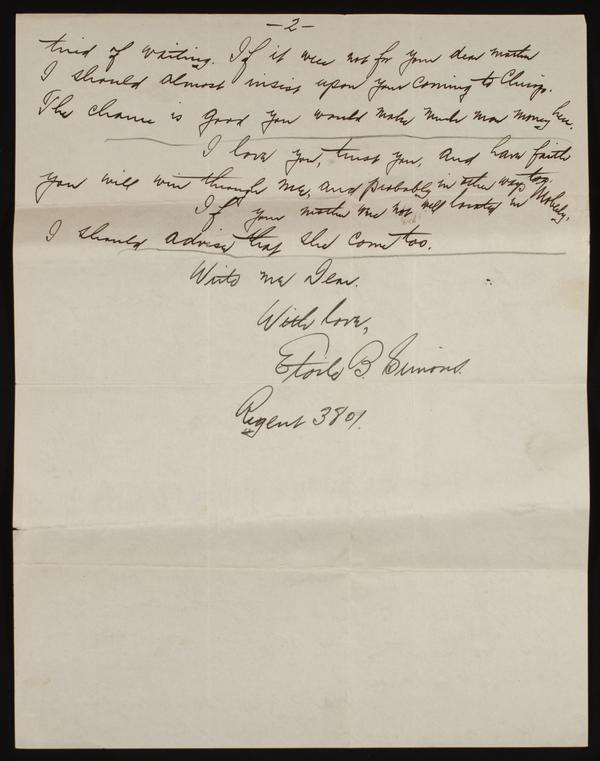 -2-
tired of waiting. If it were not for your dear mother
I should almost insist upon your coming to Chicago.
The chance is good you would make much more money here.
I love you, trust you, and have faith
you will win through me, and probably in other ways too.
If your mother were not well located in Moberly,
I should advise that she come too.
Write me Dear.
With love,
Etoile B. Simons.
Regent 3801.